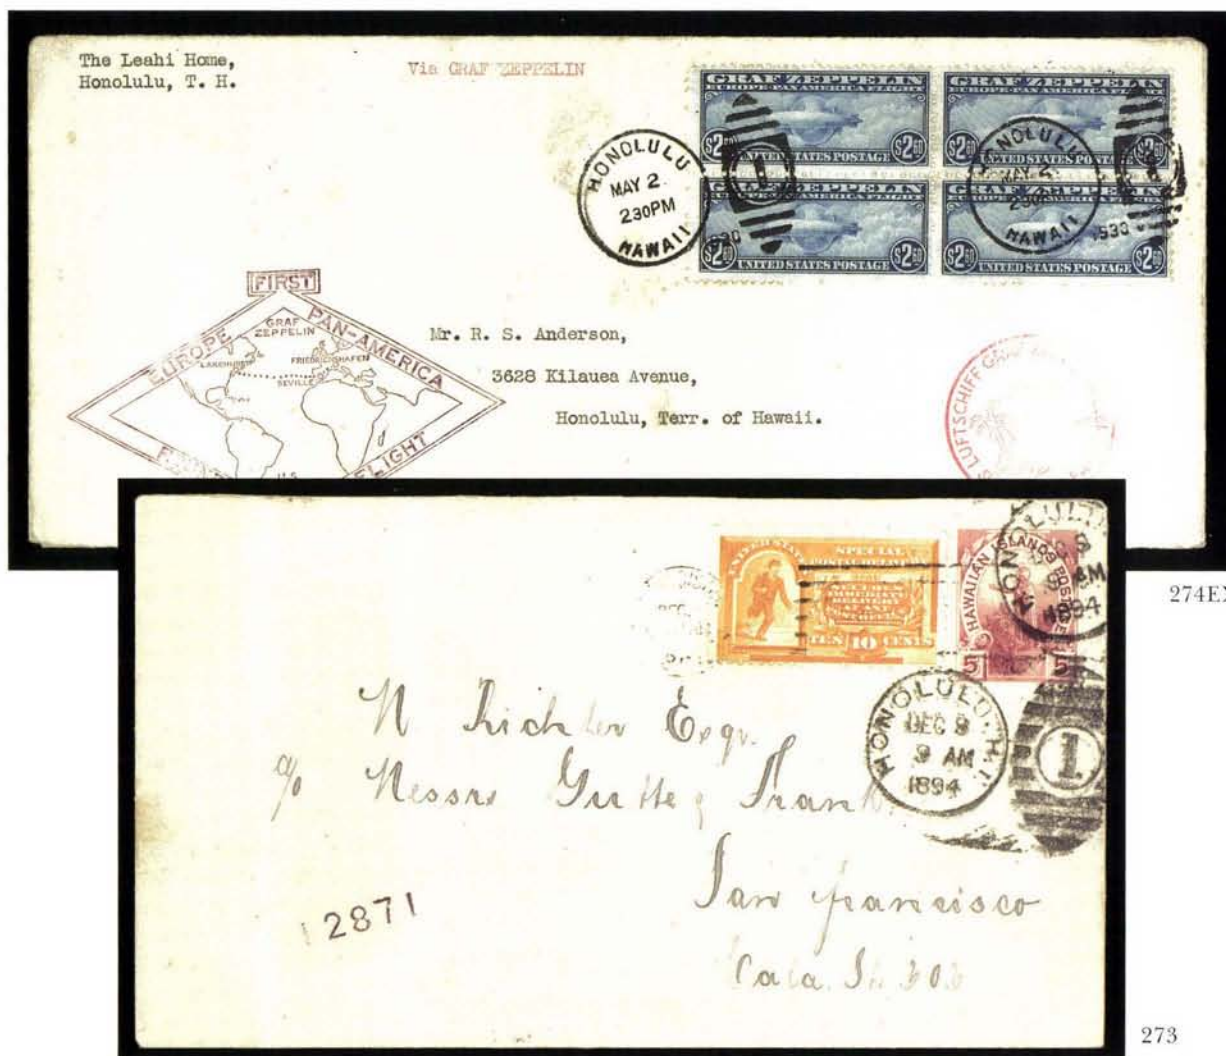 The Leahi Home,
Honolulu, T. H.
Via GRAF ZEPPELIN
GRAF ZEPPELIN
EUROPE PAN-AMERICA FLIGHT
$2.60 $2.60
UNITED STATES POSTAGE
GRAF ZEPPELIN
EUROPE PAN-AMERICA FLIGHT
$2.60 $2.60
UNITED STATES POSTAGE
GRAF ZEPPELIN
$2.60 $2.60
UNITED STATES POSTAGE
GRAF ZEPPELIN
$2.60 $2.60
UNITED STATES POSTAGE
HONOLULU
MAY 2
230PM
HAWAII
1930
1
HONOLULU
MAY 2
230PM
HAWAII
1930
FIRST
EUROPE PAN-AMERICA
GRAF
ZEPPELIN
LAKEHURST
FRIEDRICHSHAFEN
SEVILLE
FLIGHT
U.S.
Mr. R. S. Anderson,
3628 Kilauea Avenue,
Honolulu, Terr. of Hawaii.
LUFTSCHIFF GRAF
274EX
UNITED STATES
SPECIAL
POSTAL DELIVERY
TEN 10 CENTS
HAWAIIAN ISLANDS POSTAGE
5 5
HONOLULU
9 AM
1894
DEC
HONOLULU H.I.
DEC 9
9 AM
1894
1
N Richter Esqr.
c/o Messrs Gutte & Frank
San Francisco
12871
273